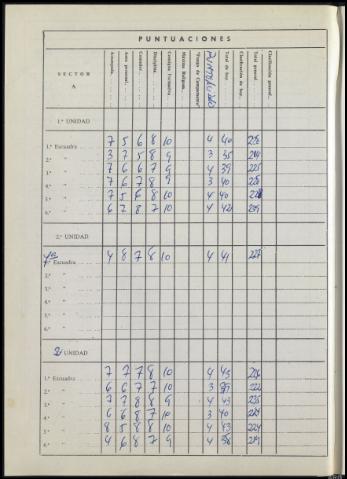 PUNTUACIONES
SECTOR
A
Acampada
Aseo personal
Comedor
Disciplina
Consigna Formativa
PUNTUALIDAD
Total de hoy
Clasificación de hoy
Total general
Clasificación general
1.ª UNIDAD
1.ª Escuadra 7 5 6 8 10 4 40
2.ª " 3 7 5 8 9 3 35
3.ª " 7 6 6 7 9 4 39 225
4.ª " 7 6 7 8 9 3 40
5.ª " 7 5 6 8 10 4 40
6.ª " 6 7 8 7 10 4 42
2.ª UNIDAD
7ª Escuadra 4 8 7 8 10 4 41 227
2.ª "
3.ª "
4.ª "
5.ª "
6.ª "
2ª UNIDAD
1.ª Escuadra 7 7 7 8 10 4 43
2.ª " 6 6 7 7 10 3
3.ª " 7 7 8 8 9 4 43 235
4.ª " 6 6 8 7 10 3 40
5.ª " 8 5 8 8 10 4 43 224
6.ª " 4 6 8 7 9 4